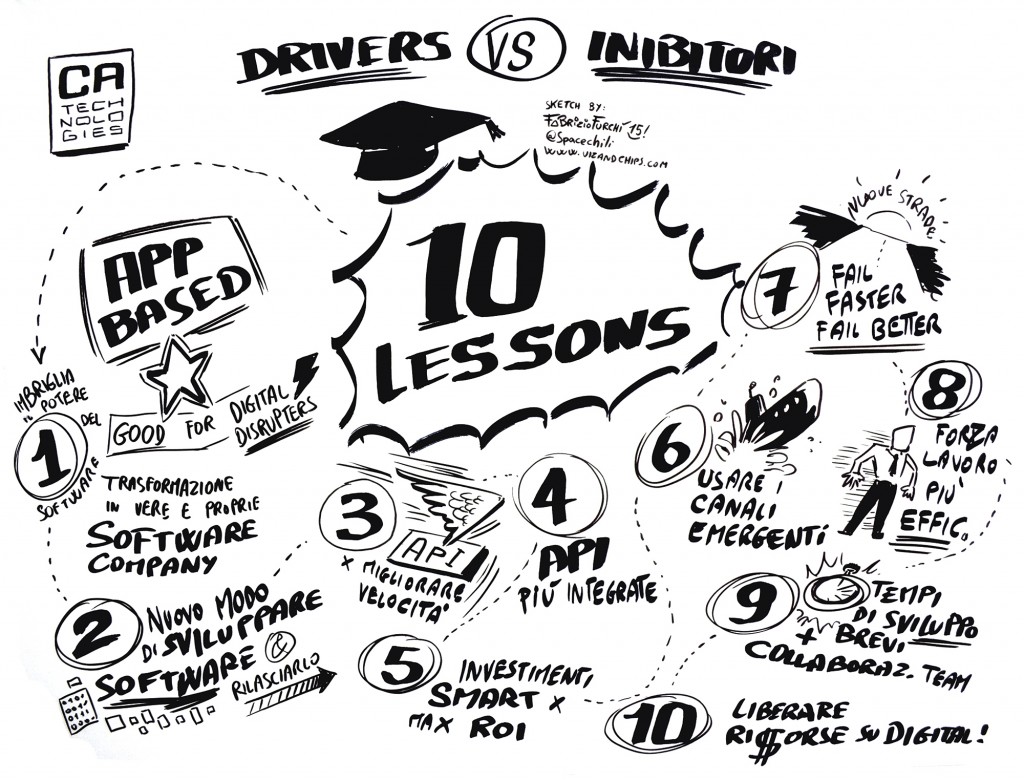 DRIVERS VS INIBITORI
CA
TECH
NOLO
GIES
SKETCH BY:
FABRIZIO FURCHÌ 15!
@Spacechili
WWW.VIZANDCHIPS.COM
10
LESSONS
APP
BASED
GOOD FOR DIGITAL
DISRUPTERS
1
IMBRIGLIA
IL POTERE
DEL
SOFTWARE
TRASFORMAZIONE
IN VERE E PROPRIE
SOFTWARE
COMPANY
2
NUOVO MODO
DI SVILUPPARE
SOFTWARE &
RILASCIARLO
3
API
X MIGLIORARE
VELOCITA'
4
API
PIÙ INTEGRATE
5
INVESTIMENTI
SMART X
MAX ROI
6
USARE I
CANALI
EMERGENTI
7
NUOVE STRADE
FAIL
FASTER
FAIL BETTER
8
FORZA
LAVORO
PIU'
EFFIC.
9
TEMPI
DI SVILUPPO
+ BREVI
COLLABORAZ. TEAM
10
LIBERARE
RI$ORSE SU DIGITAL!